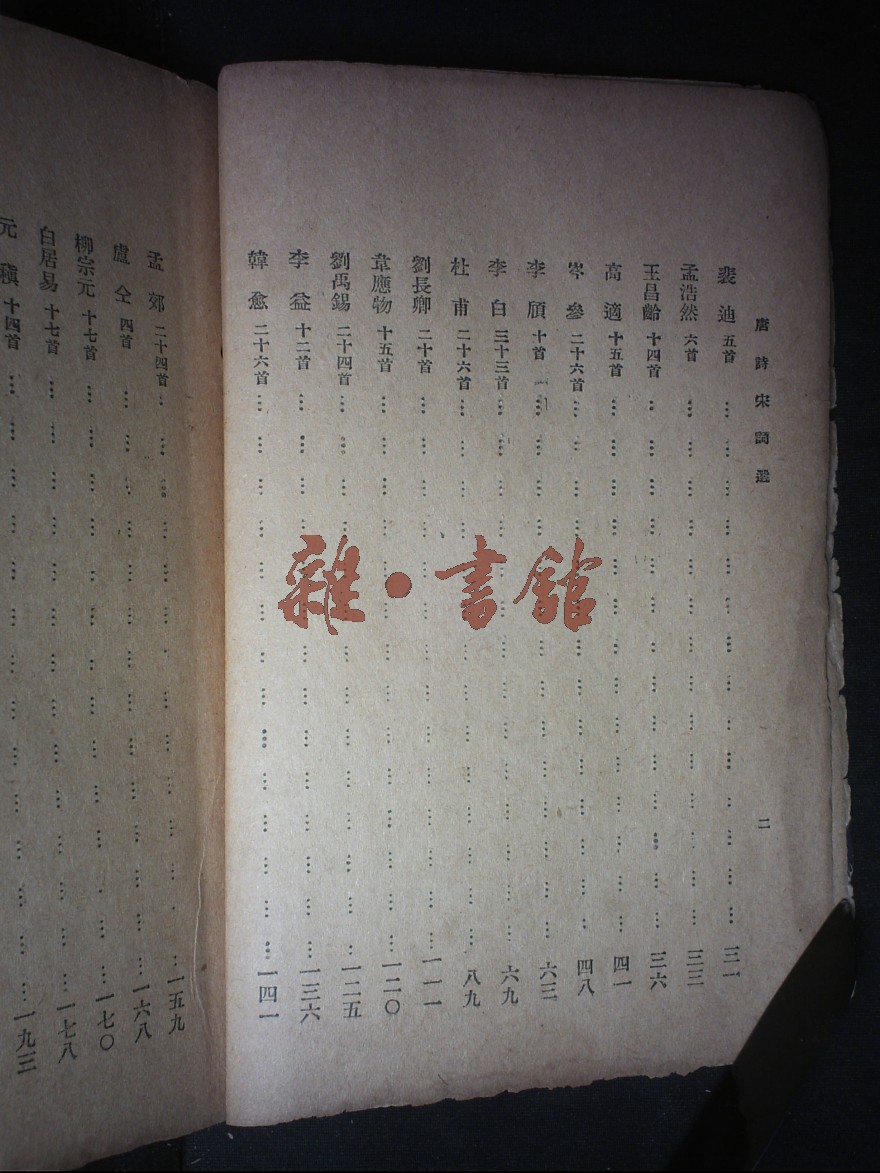 唐詩宋詞選
二
裴迪 五首 三一
孟浩然 六首 三三
王昌齡 十四首 三六
高適 十五首 四一
岑參 二十六首 四八
李頎 十首 六三
李白 三十三首 六九
杜甫 二十六首 八九
劉長卿 二十首 一一一
韋應物 十五首 一二〇
劉禹錫 二十四首 一二五
李益 十二首 一三六
韓愈 二十六首 一四一
孟郊 二十四首 一五九
盧仝 四首 一六八
柳宗元 十七首 一七〇
白居易 十七首 一七八
元稹 十四首 一九三
雜·書館